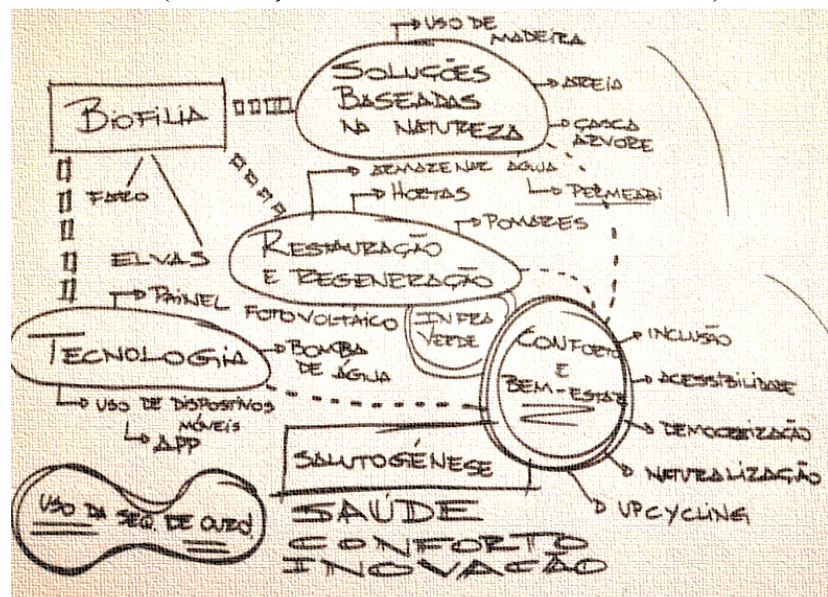 USO DE
MADEIRA
SOLUÇÕES
BASEADAS
NA NATUREZA
AREIA
CASCA
ÁRVORE
PERMEABI
BIOFILIA
FARO
ELVAS
ARMAZENAR ÁGUA
HORTAS
POMARES
RESTAURAÇÃO
E REGENERAÇÃO
PAINEL
FOTOVOLTÁICO
INFRA
VERDE
TECNOLOGIA
BOMBA
DE ÁGUA
USO DE DISPOSITIVOS
MÓVEIS
APP
CONFORTO
E
BEM-ESTAR
INCLUSÃO
ACESSIBILIDADE
DEMOCRATIZAÇÃO
NATURALIZAÇÃO
UPCYCLING
SALUTOGÉNESE
USO DA SEQ. DE OURO
SAÚDE
CONFORTO
INOVAÇÃO